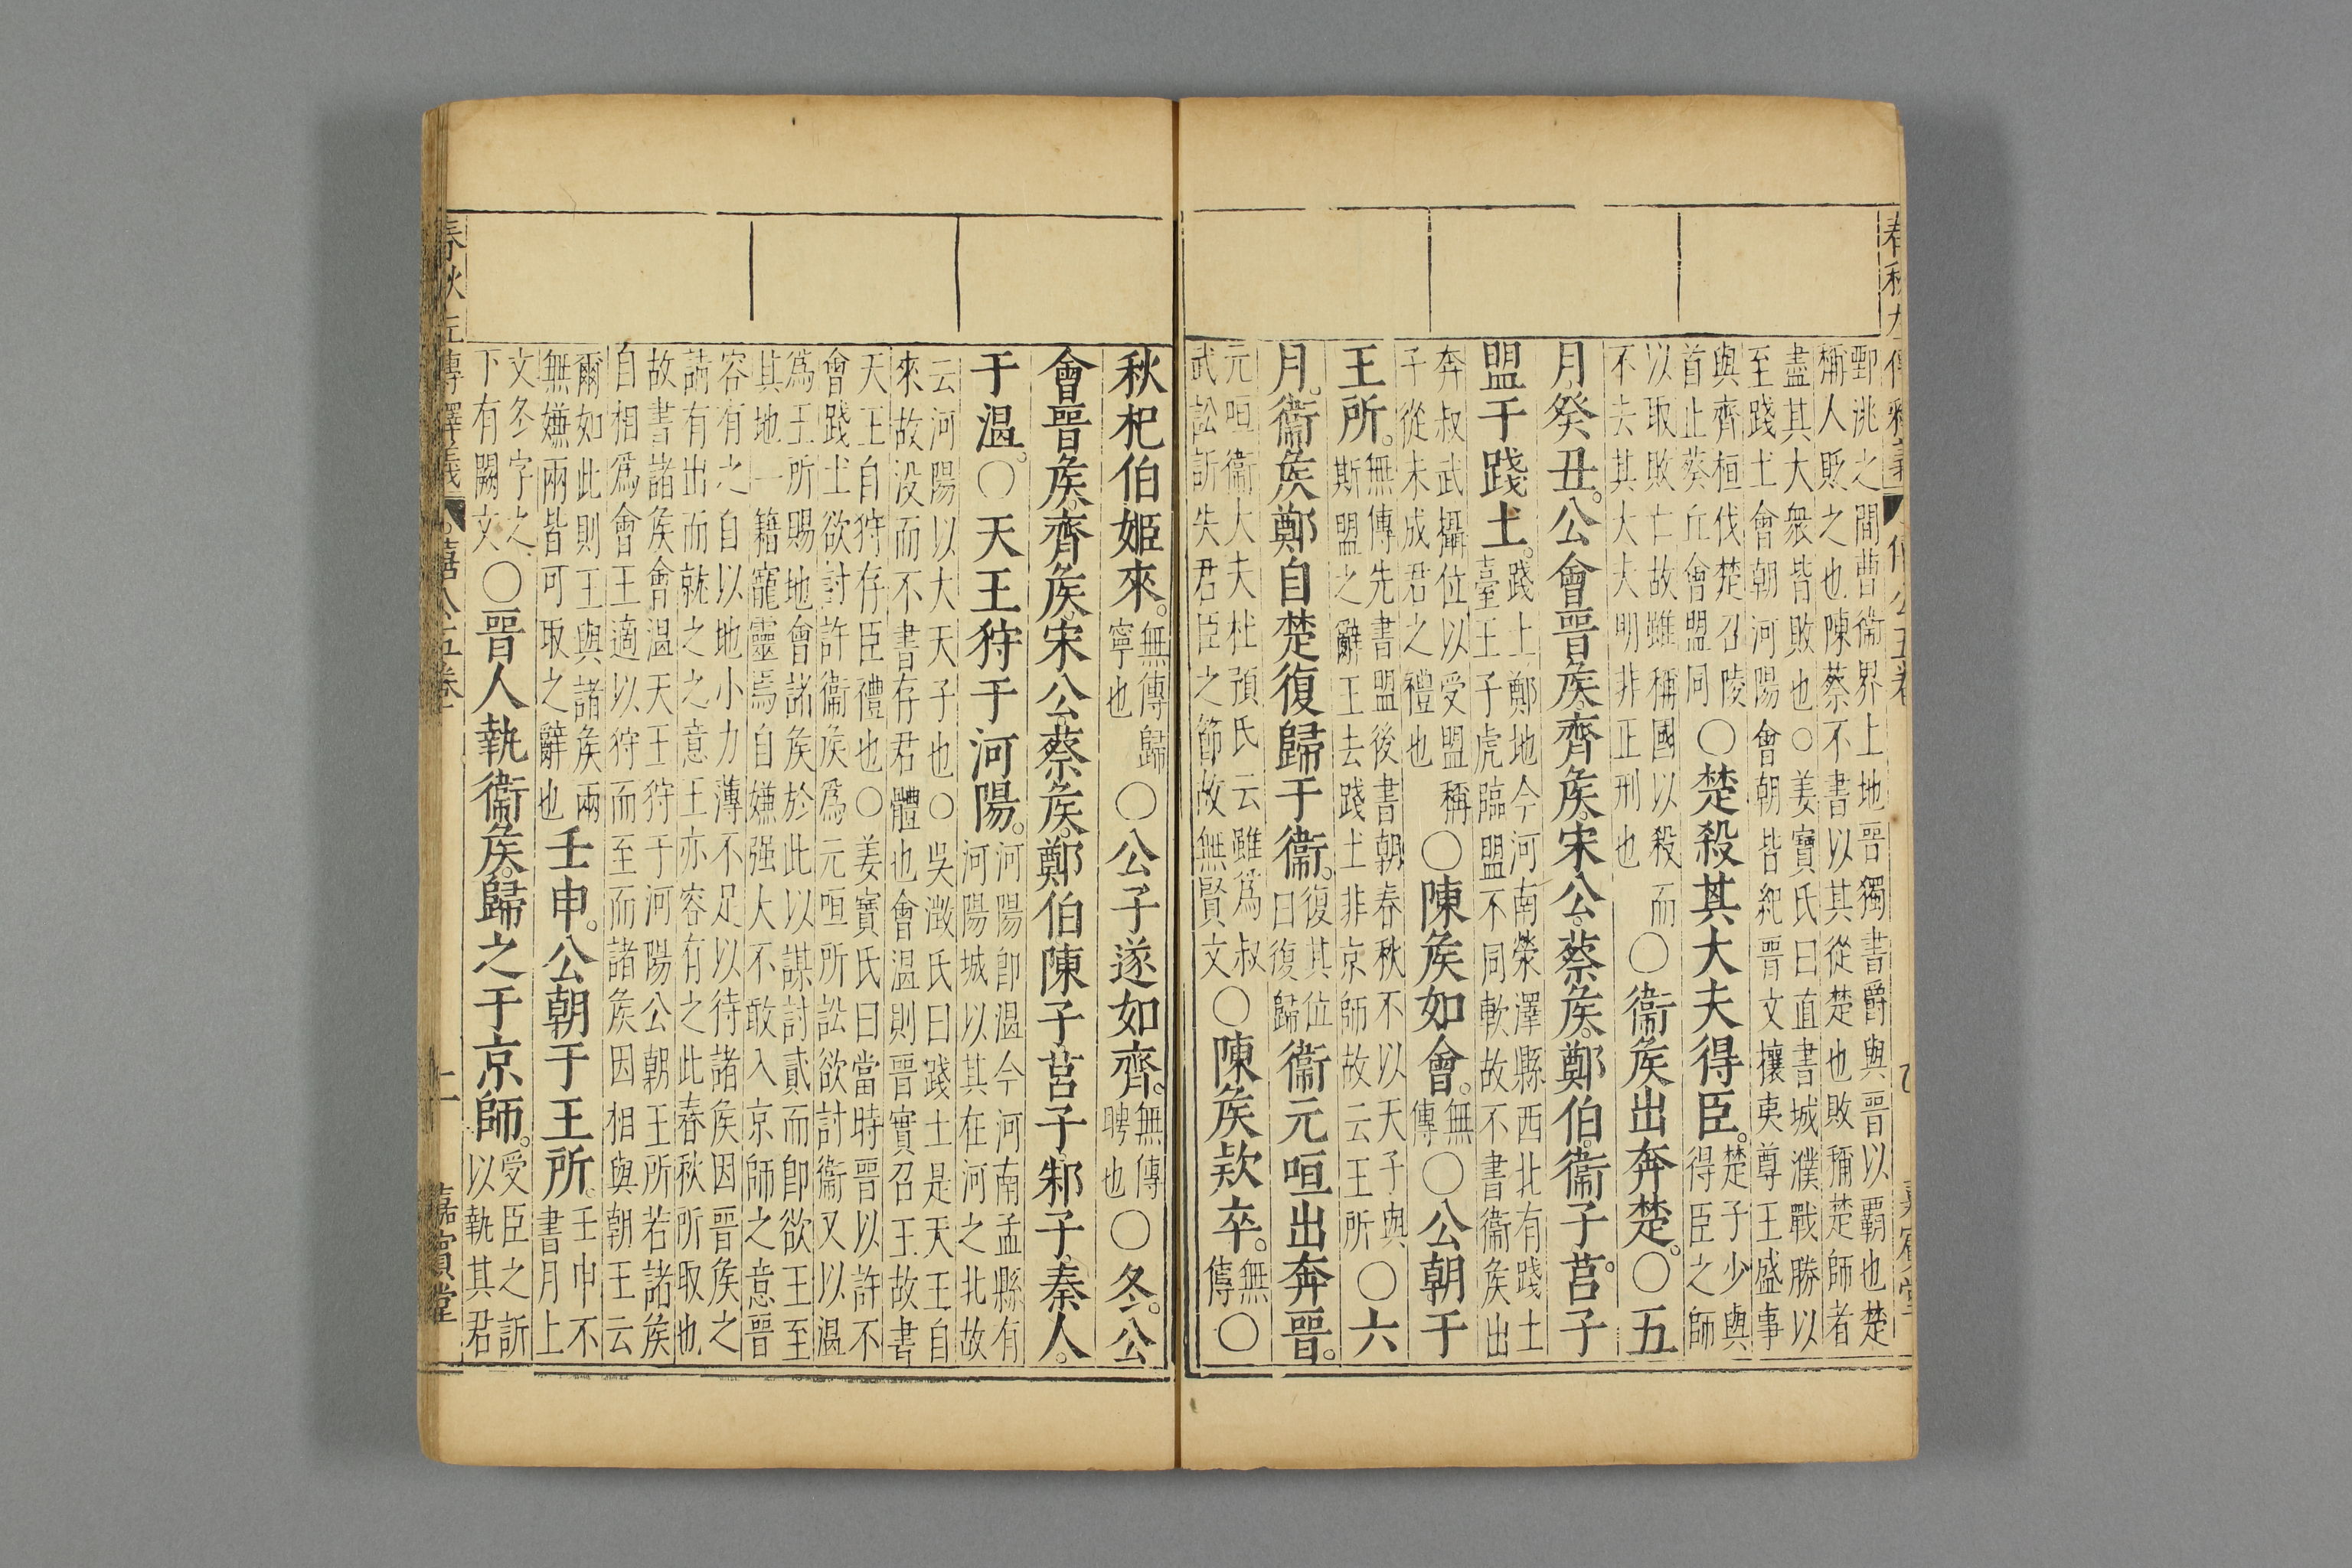 鄄洮之間曹衞界上地晉獨書爵與晉以覇也楚
稱人貶之也陳蔡不書以其從楚也敗稱楚師者
盡其大衆皆敗也○姜寶氏曰直書城濮戰勝以
至踐土會朝河陽會朝皆紀晉文攘夷尊王盛事
與齊桓伐楚召陵首止葵丘會盟同○楚殺其大夫得臣。楚子少與得臣之師
以取敗亡故雖稱國以殺而不去其大夫明非正刑也○衞矦出奔楚。○五
月癸丑。公會晉矦。齊矦。宋公。蔡矦。鄭伯。衞子。莒子
盟于踐土。踐土鄭地今河南滎澤縣西北有踐土臺王子虎臨盟不同歃故不書衞矦出
奔叔武攝位以受盟稱子從未成君之禮也○陳矦如會。無傳○公朝于
王所。無傳先書盟後書朝春秋不以天子與斯盟之辭王去踐土非京師故云王所○六
月。衞矦鄭自楚復歸于衞。復其位曰復歸衞元咺出奔晉。
元咺衞大夫杜預氏云雖爲叔武訟訴失君臣之節故無賢文○陳矦款卒。無傳○
秋杞伯姬來。無傳歸寧也○公子遂如齊。無傳聘也○冬。公
會晉矦。齊矦。宋公。蔡矦。鄭伯陳子莒子。邾子。秦人。
于温。○天王狩于河陽。河陽卽温今河南孟縣有河陽城以其在河之北故
云河陽以大天子也○吳澂氏曰踐土是天王自
來故没而不書存君體也會温則晉實召王故書
天王自狩存臣禮也○姜寶氏曰當時晉以許不
會踐土欲討許衞矦爲元咺所訟欲討衞又以温
爲王所賜地會諸矦於此以謀討貳而卽欲王至
其地一籍寵靈焉自嫌强大不敢入京師之意晉
容有之自以地小力薄不足以待諸矦因晉矦之
請有出而就之之意王亦容有之此春秋所取也
故書諸矦會温天王狩于河陽公朝王所若諸矦
自相爲會王適以狩而至而諸矦因相與朝王云
爾如此則王與諸矦兩無嫌兩皆可取之辭也壬申。公朝于王所。壬申不書月上
文冬字之下有闕文○晉人執衞矦。歸之于京師。受臣之訴以執其君
春秋左傳釋義 僖公五卷 十一 嘉賓堂